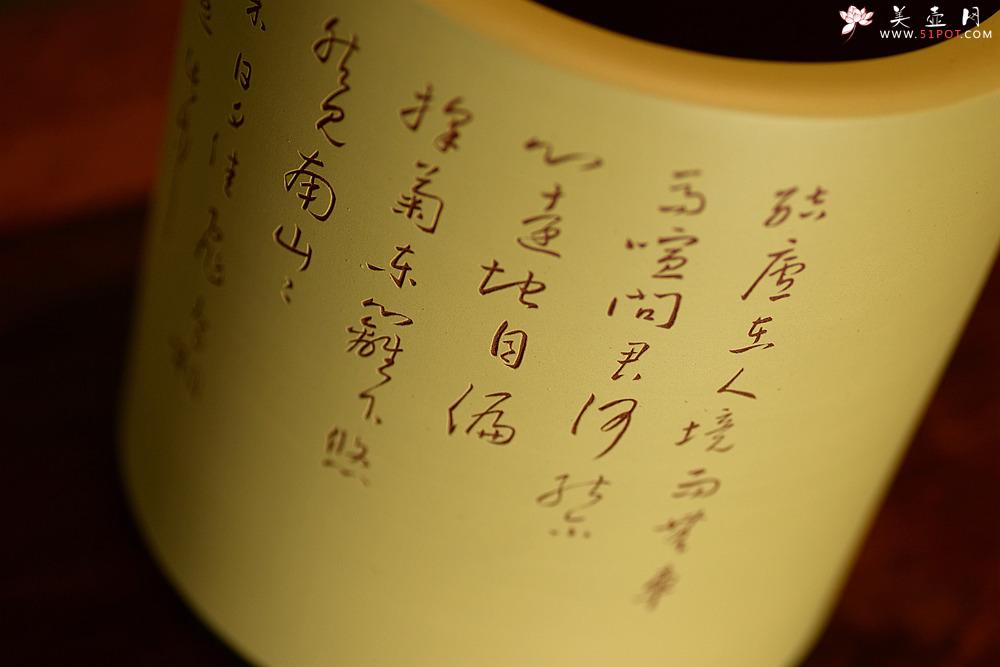 美壶网
WWW.51POT.COM
結廬在人境而無車
馬喧問君何能尔
心遠地自偏
採菊東籬下悠
然見南山〻
日夕佳飛鳥